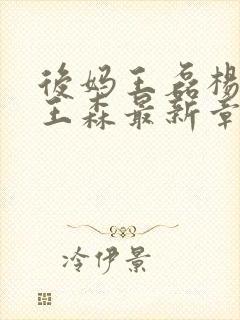 後妈王磊楊
王森最新章
冷伊景